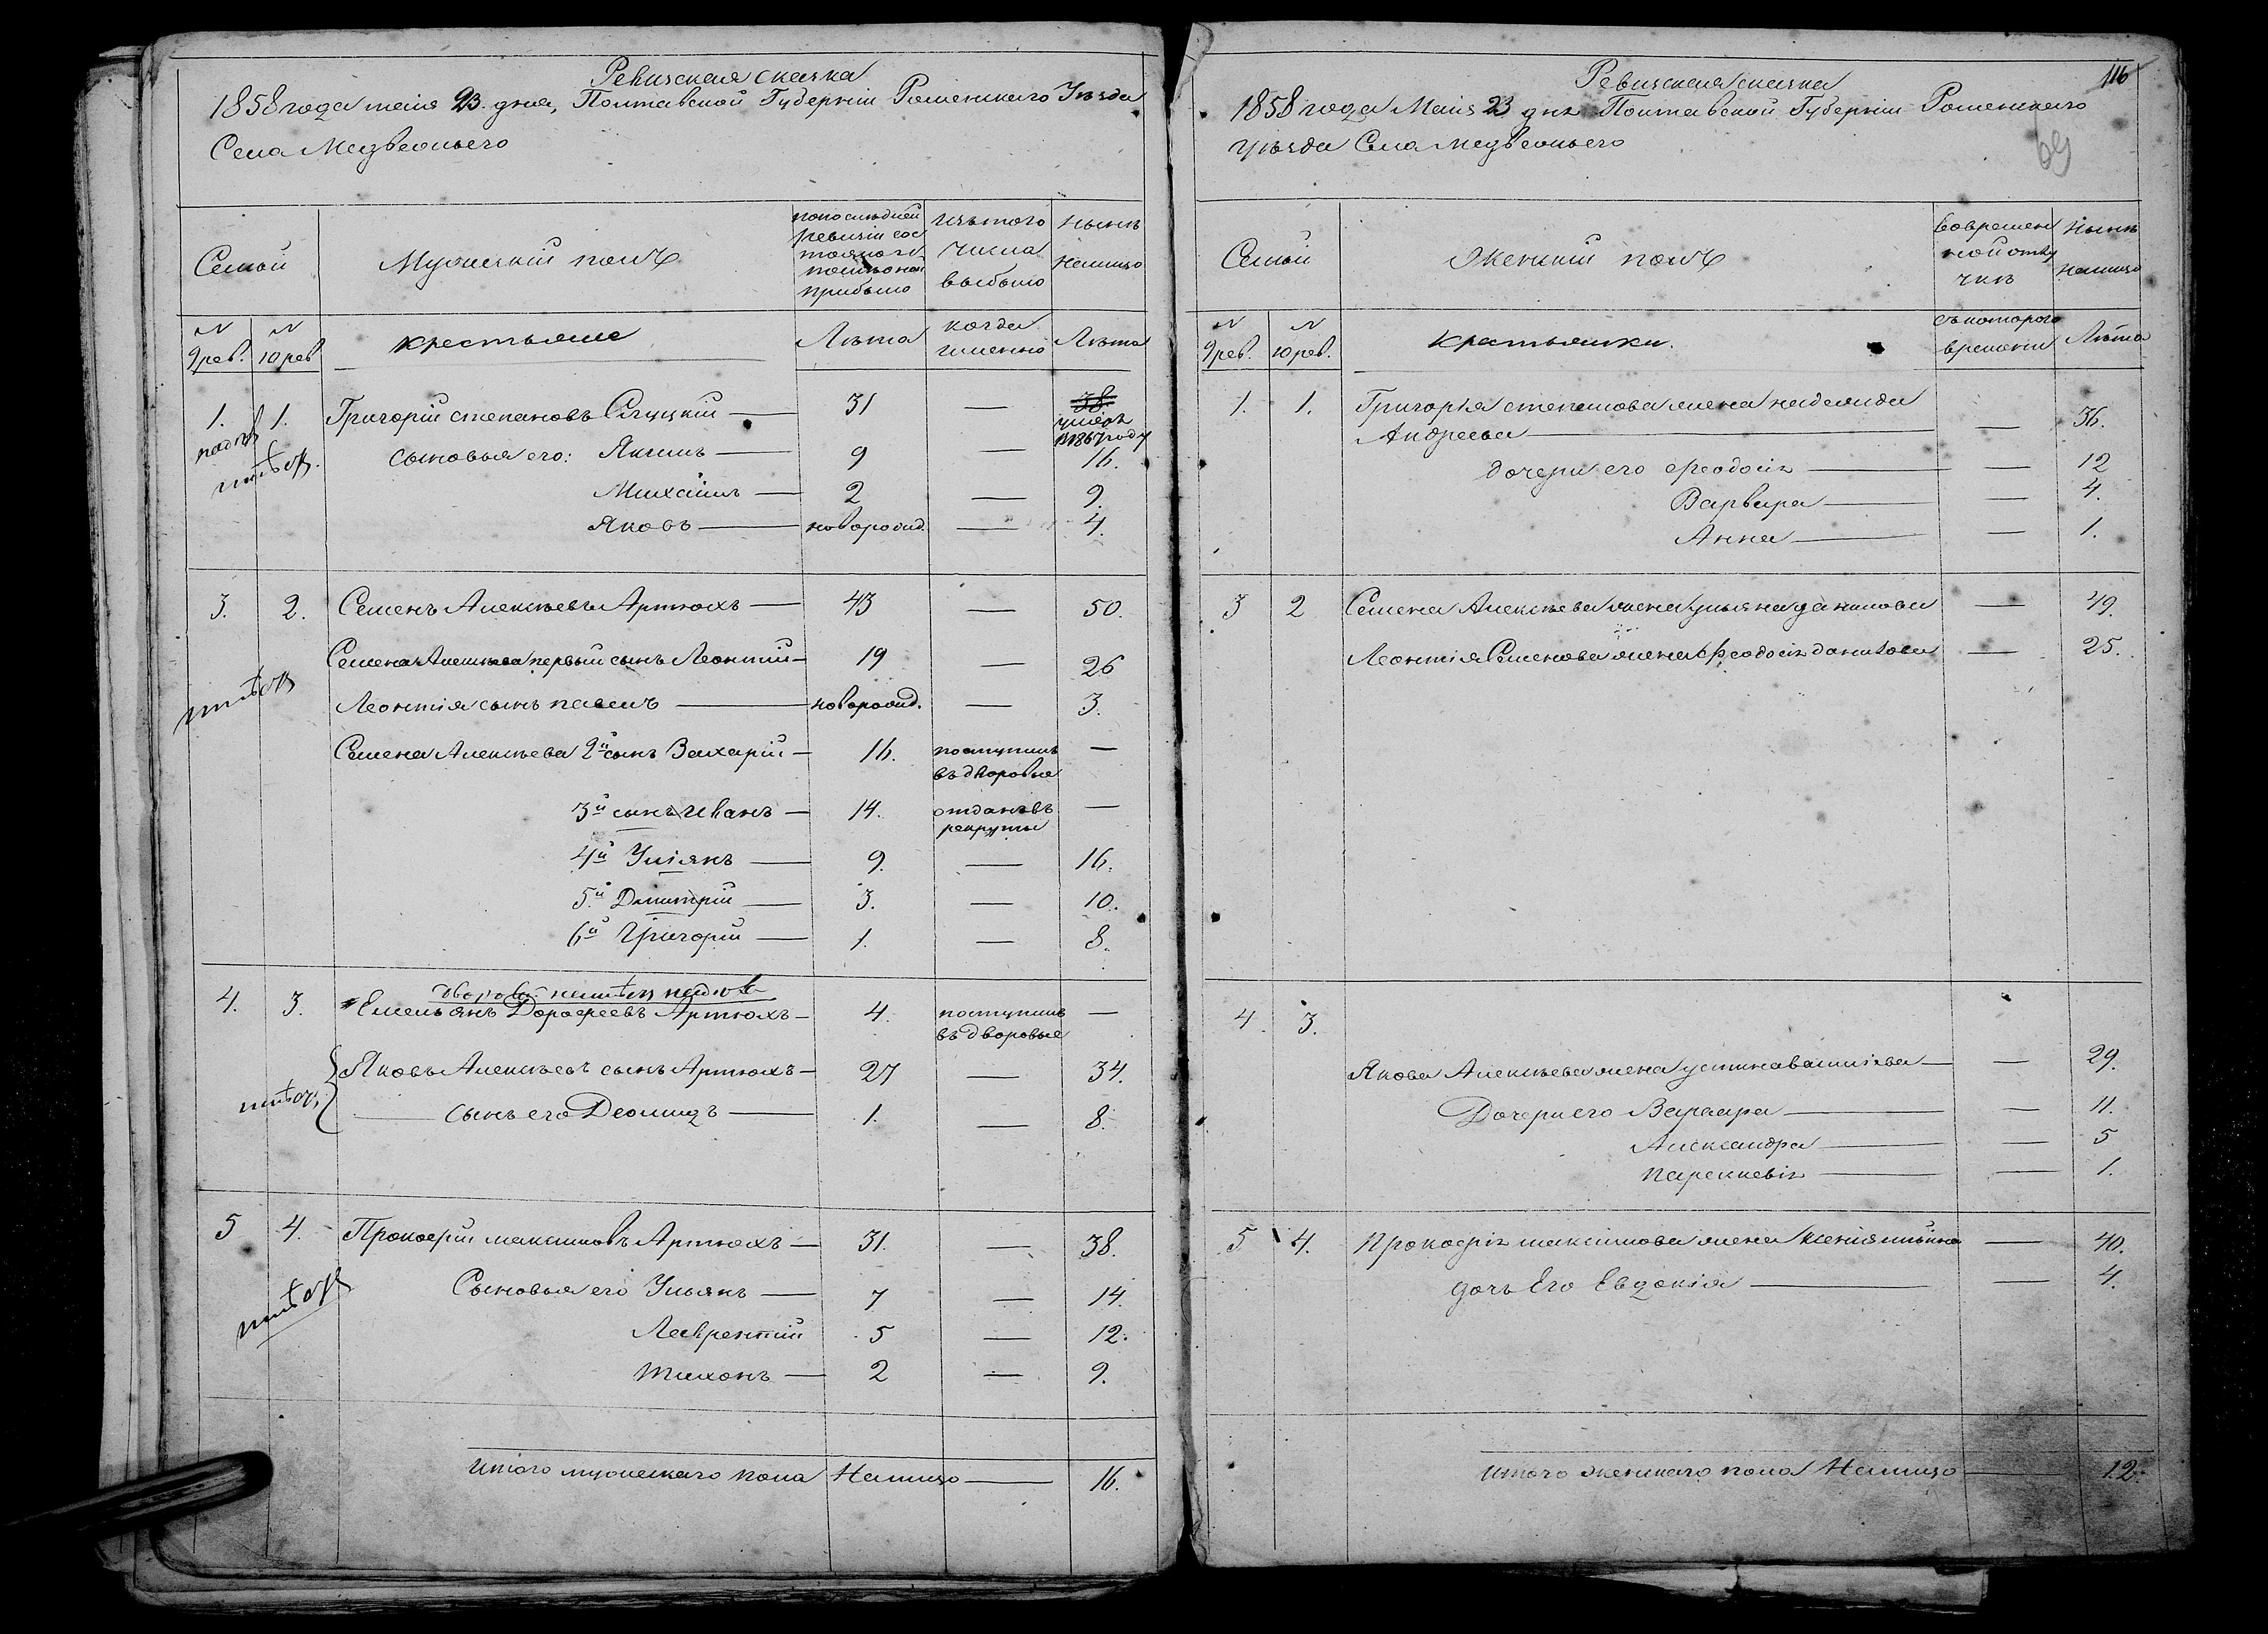 Ревизская сказка
1858 года маія 23. дня, Полтавской Губерніи Роменскаго Уѣзда
Села Медвежьего
Семьи
Мужескій полъ
по последней ревизіи состояло и после оной прибыло
изъ того числа выбыло
нынѣ налицо
N 9 рев.
N 10 рев
крестьяне
Лѣта
когда именно
Лѣта
1. 1. Григорій Степановъ Слуцкій — 31 — 38.
умеръ
в 1867 году
сыновья его: Якимъ — 9 — 16.
Михаилъ — 2 — 9.
Яковъ — новорожд. — 4.
3. 2. Семенъ Алексѣевъ Артюхъ — 43 — 50.
Семена Алексѣева первый сынъ Леонтій — 19 — 26
Леонтія сынъ павелъ — новорожд. — 3.
Семена Алексѣева 2й сынъ Захарій — 16. поступилъ въ дворовые —
3й сынъ Иванъ — 14. отданъ въ рекруты —
4й Уліянъ — 9. — 16.
5й Дмитрій — 3. — 10.
6й Григорій — 1. — 8.
4. 3. Емельянъ Дорофеевъ Артюхъ — 4. поступилъ въ дворовые —
Яковъ Алексѣевъ сынъ Артюхъ — 27 — 34.
сынъ его Деомидъ — 1. — 8.
5 4. Прокофій максимовъ Артюхъ — 31. — 38.
Сыновья его Ульянъ — 7 — 14.
Лаврентій 5 — 12.
Тихонъ — 2 — 9.
Итого мужескаго пола Налицо — 16.
116
69
Ревизская сказка
1858 года Маія 23 дня Полтавской Губерніи Роменскаго
уѣзда Села Медвежьего
Семьи
Женскій полъ
во временной отлучкѣ
Нынѣ налицо
N 9 рев.
N 10 рев.
крестьянки.
съ котораго времени
Лѣта
1. 1. Григорія степанова жена
Андреева — — 36.
дочери его Феодосія — — 12
Варвара — — 4.
Анна — — 1.
3 2 Семена Алексѣева жена ульяна данилова — 49.
Леонтія Семенова жена Феодосія данилова — 25.
4. 3.
Якова Алексѣева жена устина — — 29.
Дочери его Варвара — — 11.
Александра — — 5
параскевія — — 1.
5 4. Прокофія максимова жена Ксенія — 40.
дочь Его Евдокія — — 4.
Итого женскаго пола Налицо — 12.